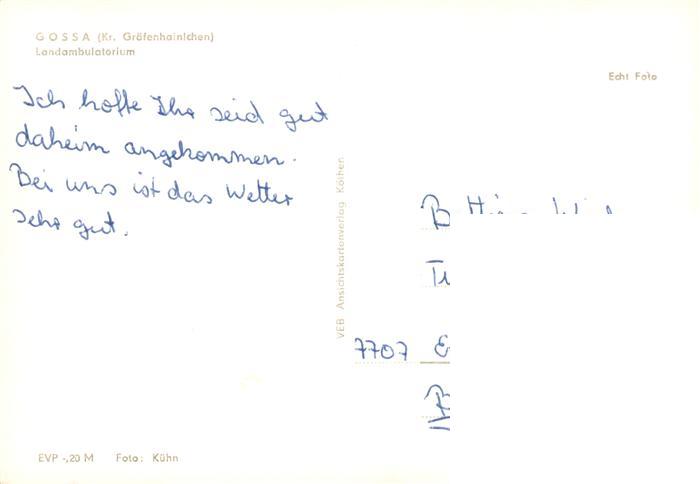 GOSSA (Kr. Gräfenhainichen)
Landambulatorium
Echt Foto
Ich hoffe Ihr seid gut
daheim angekommen.
Bei uns ist das Wetter
sehr gut.
VEB Ansichtskartenverlag Köthen
7707
EVP -,20 M Foto: Kühn